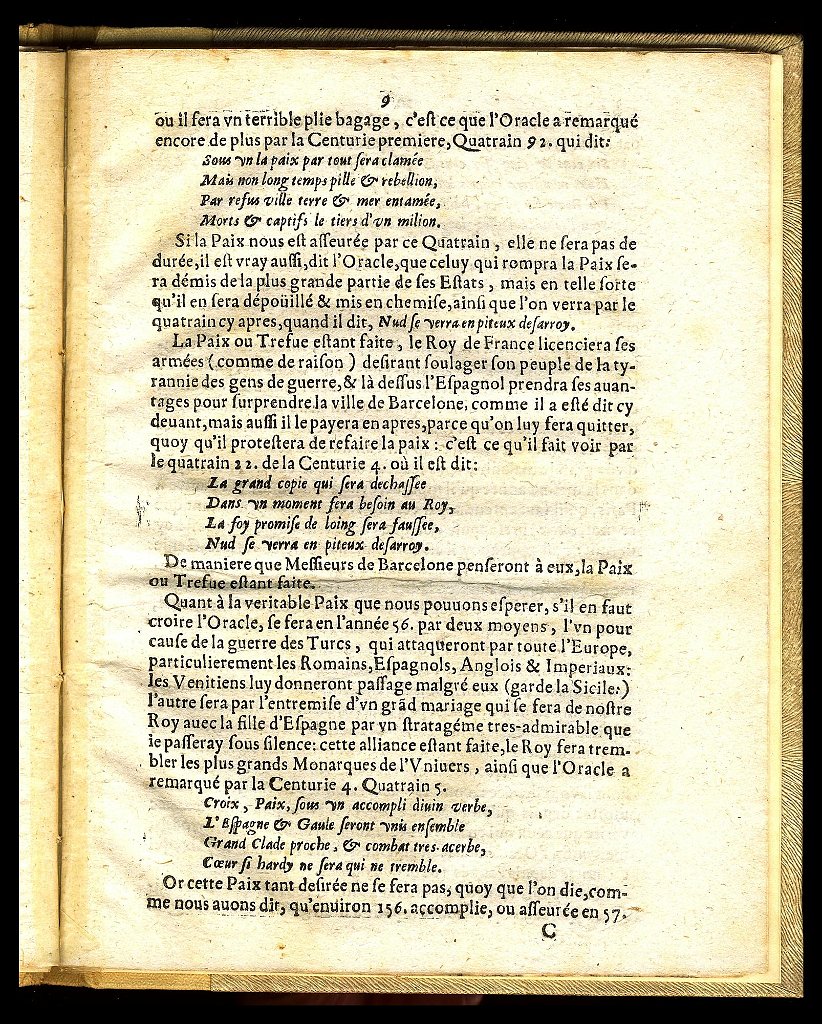 9
ou il ſera vn terrible plie bagage, c'eſt ce que l'Oracle a remarqué
encore de plus par la Centurie premiere, Quatrain 92. qui dit:
Sous vn la paix par tout ſera clamée
Mais non long temps pille & rebellion,
Par refus ville terre & mer entamée,
Morts & captifs le tiers d'vn milion.
Si la Paix nous eſt aſſeurée par ce Quatrain, elle ne ſera pas de
durée, il eſt vray auſſi, dit l'Oracle, que celuy qui rompra la Paix ſe-
ra démis de la plus grande partie de ſes Eſtats, mais en telle ſorte
qu'il en ſera dépoüillé & mis en chemiſe, ainſi que l'on verra par le
quatrain cy apres, quand il dit, Nud ſe verra en piteux deſarroy.
La Paix ou Trefue eſtant faite, le Roy de France licenciera ſes
armées (comme de raiſon) deſirant ſoulager ſon peuple de la ty-
rannie des gens de guerre, & là deſſus l'Eſpagnol prendra ſes auan-
tages pour ſurprendre la ville de Barcelone, comme il a eſté dit cy
deuant, mais auſſi il le payera en apres, parce qu'on luy fera quitter,
quoy qu'il proteſtera de refaire la paix: c'eſt ce qu'il fait voir par
le quatrain 22. de la Centurie 4. où il eſt dit:
La grand copie qui ſera dechaſſee
Dans vn moment fera beſoin au Roy,
La foy promiſe de loing ſera fauſſee,
Nud ſe verra en piteux deſarroy.
De maniere que Meſſieurs de Barcelone penſeront à eux, la Paix
ou Trefue eſtant faite.
Quant à la veritable Paix que nous pouuons eſperer, s'il en faut
croire l'Oracle, ſe fera en l'année 56. par deux moyens, l'vn pour
cauſe de la guerre des Turcs, qui attaqueront par toute l'Europe,
particulierement les Romains, Eſpagnols, Anglois & Imperiaux:
les Venitiens luy donneront paſſage malgré eux (garde la Sicile:)
l'autre ſera par l'entremiſe d'vn grãd mariage qui ſe fera de noſtre
Roy auec la fille d'Eſpagne par vn ſtratagéme tres-admirable que
ie paſſeray ſous ſilence: cette alliance eſtant faite, le Roy fera trem-
bler les plus grands Monarques de l'Vniuers, ainſi que l'Oracle a
remarqué par la Centurie 4. Quatrain 5.
Croix, Paix, ſous vn accompli diuin verbe,
L'Eſpagne & Gaule ſeront vnis enſemble
Grand Clade proche, & combat tres-acerbe,
Cœur ſi hardy ne ſera qui ne tremble.
Or cette Paix tant deſirée ne ſe fera pas, quoy que l'on die, com-
me nous auons dit, qu'enuiron 156. accomplie, ou aſſeurée en 57.
C